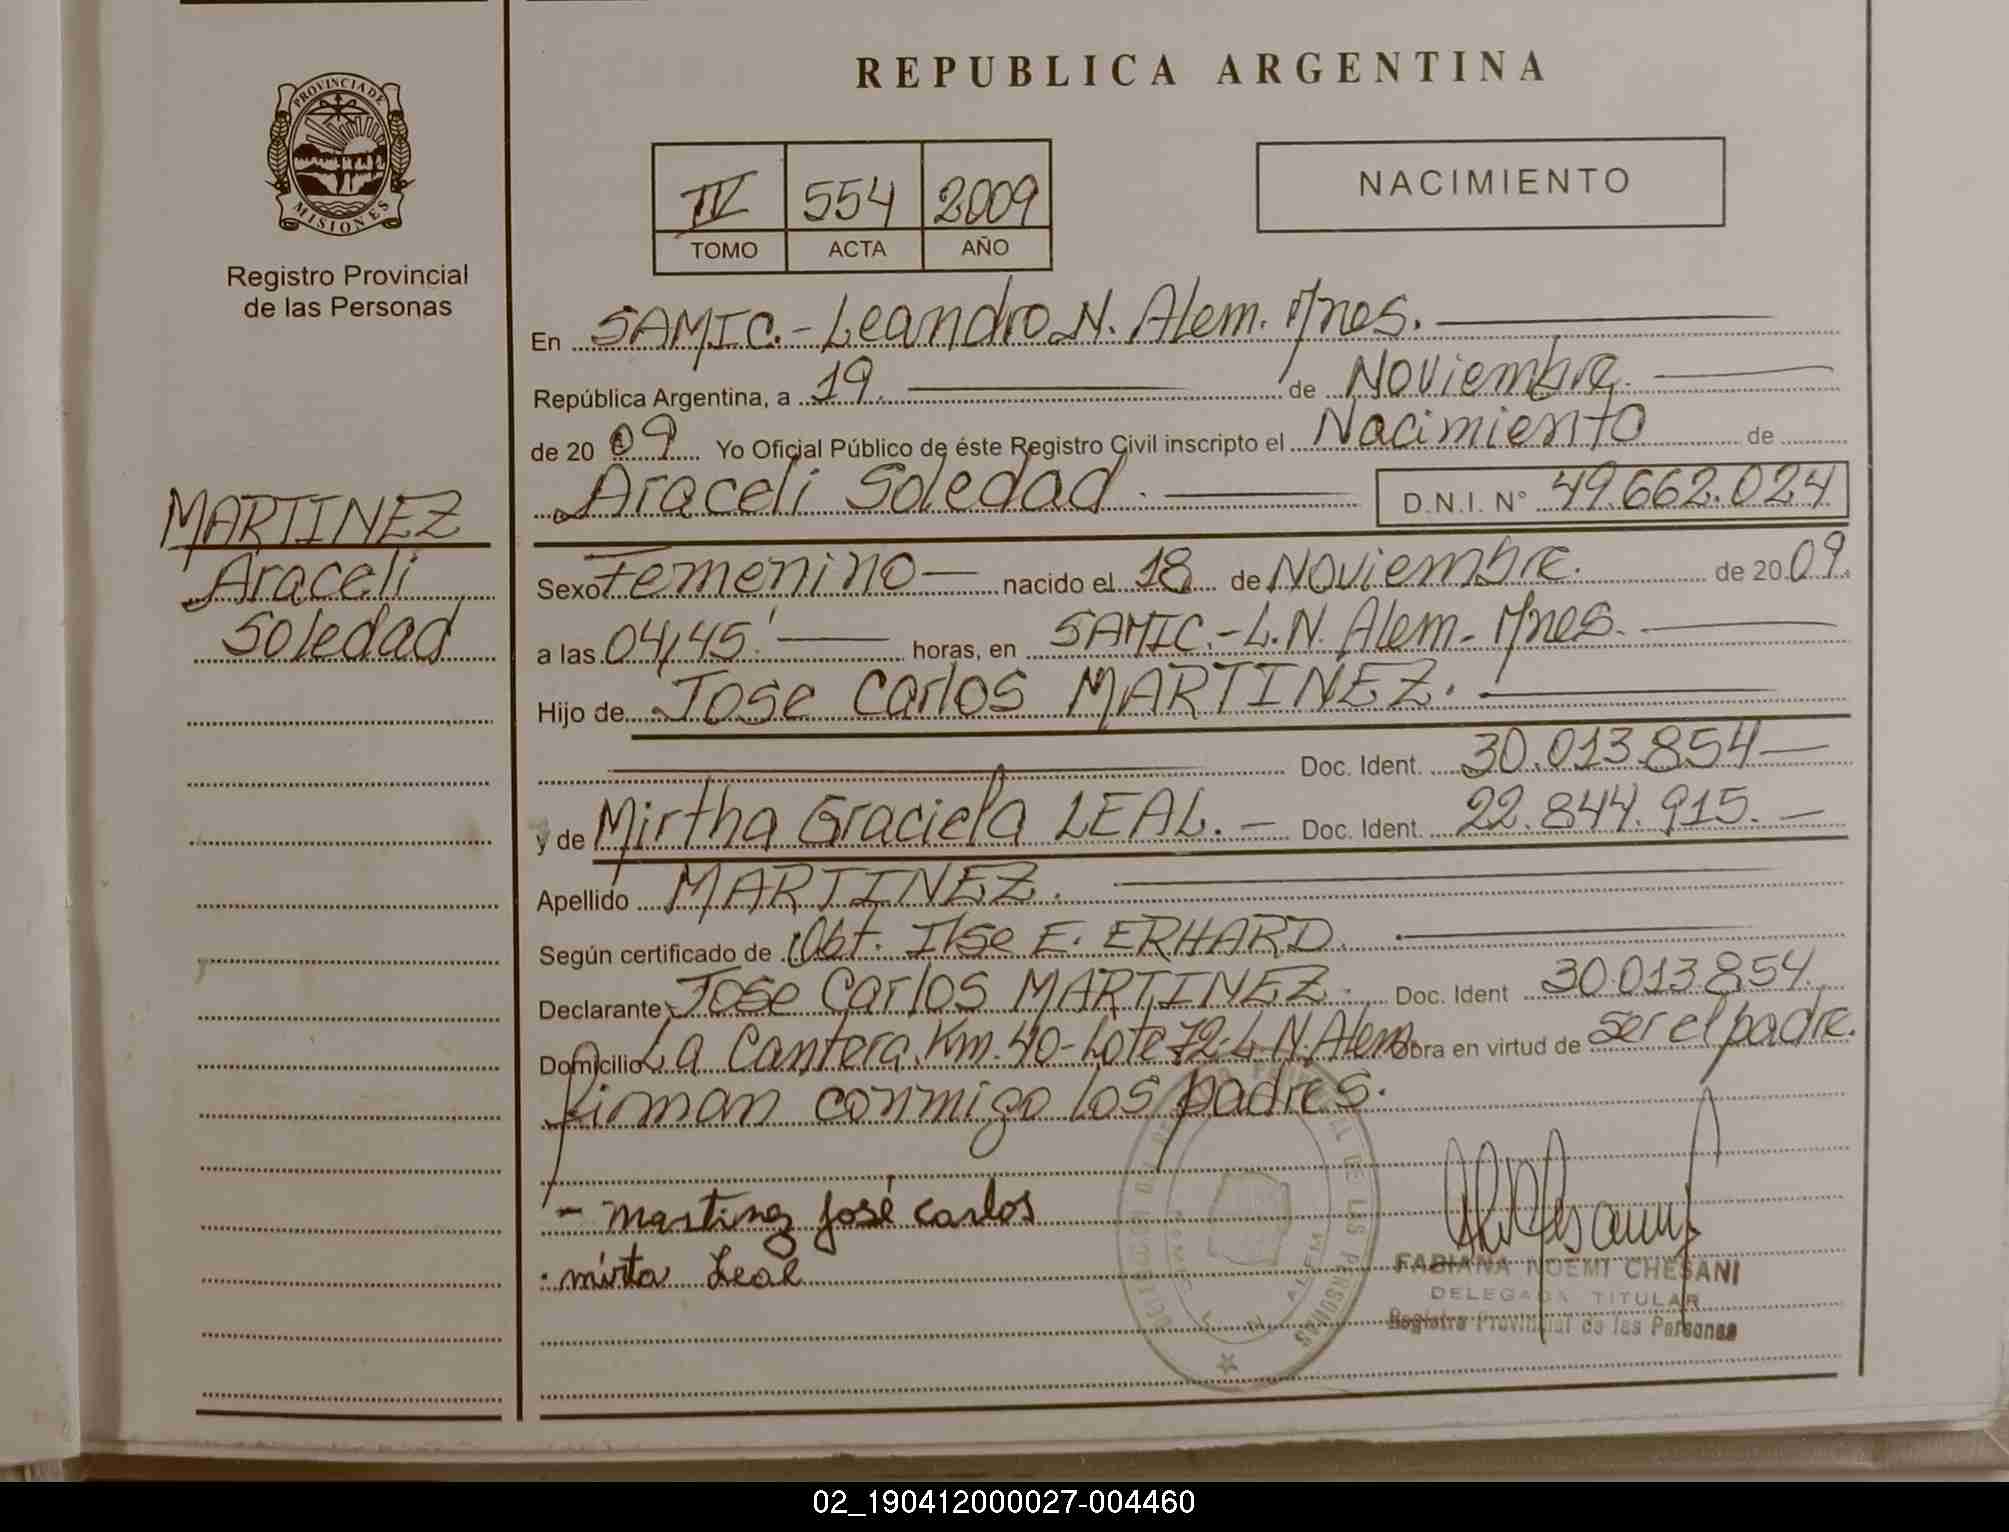 PROVINCIA DE
MISIONES
Registro Provincial
de las Personas
MARTINEZ
Araceli
Soledad
REPUBLICA ARGENTINA
IV 554 2009
TOMO ACTA AÑO
NACIMIENTO
En SAMIC.- Leandro N. Alem. Mnes.
República Argentina, a 19. de Noviembre.
de 20 09 Yo Oficial Público de éste Registro Civil inscripto el Nacimiento de
Araceli Soledad. D.N.I. N° 49.662.024
Sexo Femenino nacido el 18 de Noviembre. de 20 09.
a las 04,45' horas, en SAMIC.- L.N. Alem. Mnes.
Hijo de Jose Carlos MARTINEZ.
Doc. Ident. 30.013.854
y de Mirtha Graciela LEAL. - Doc. Ident. 22.844.915. -
Apellido MARTINEZ.
Según certificado de Obt. Ilse E. ERHARD.
Declarante Jose Carlos MARTINEZ. Doc. Ident 30.013.854.
Domicilio La Cantera. Km. 40- Lote 72- L.N. Alem. Obra en virtud de ser el padre.
firman conmigo los padres.
- Martinez José Carlos
. mirta Leal
FABIANA NOEMI CHESANI
DELEGADA TITULAR
Registro Provincial de las Personas
02_190412000027-004460